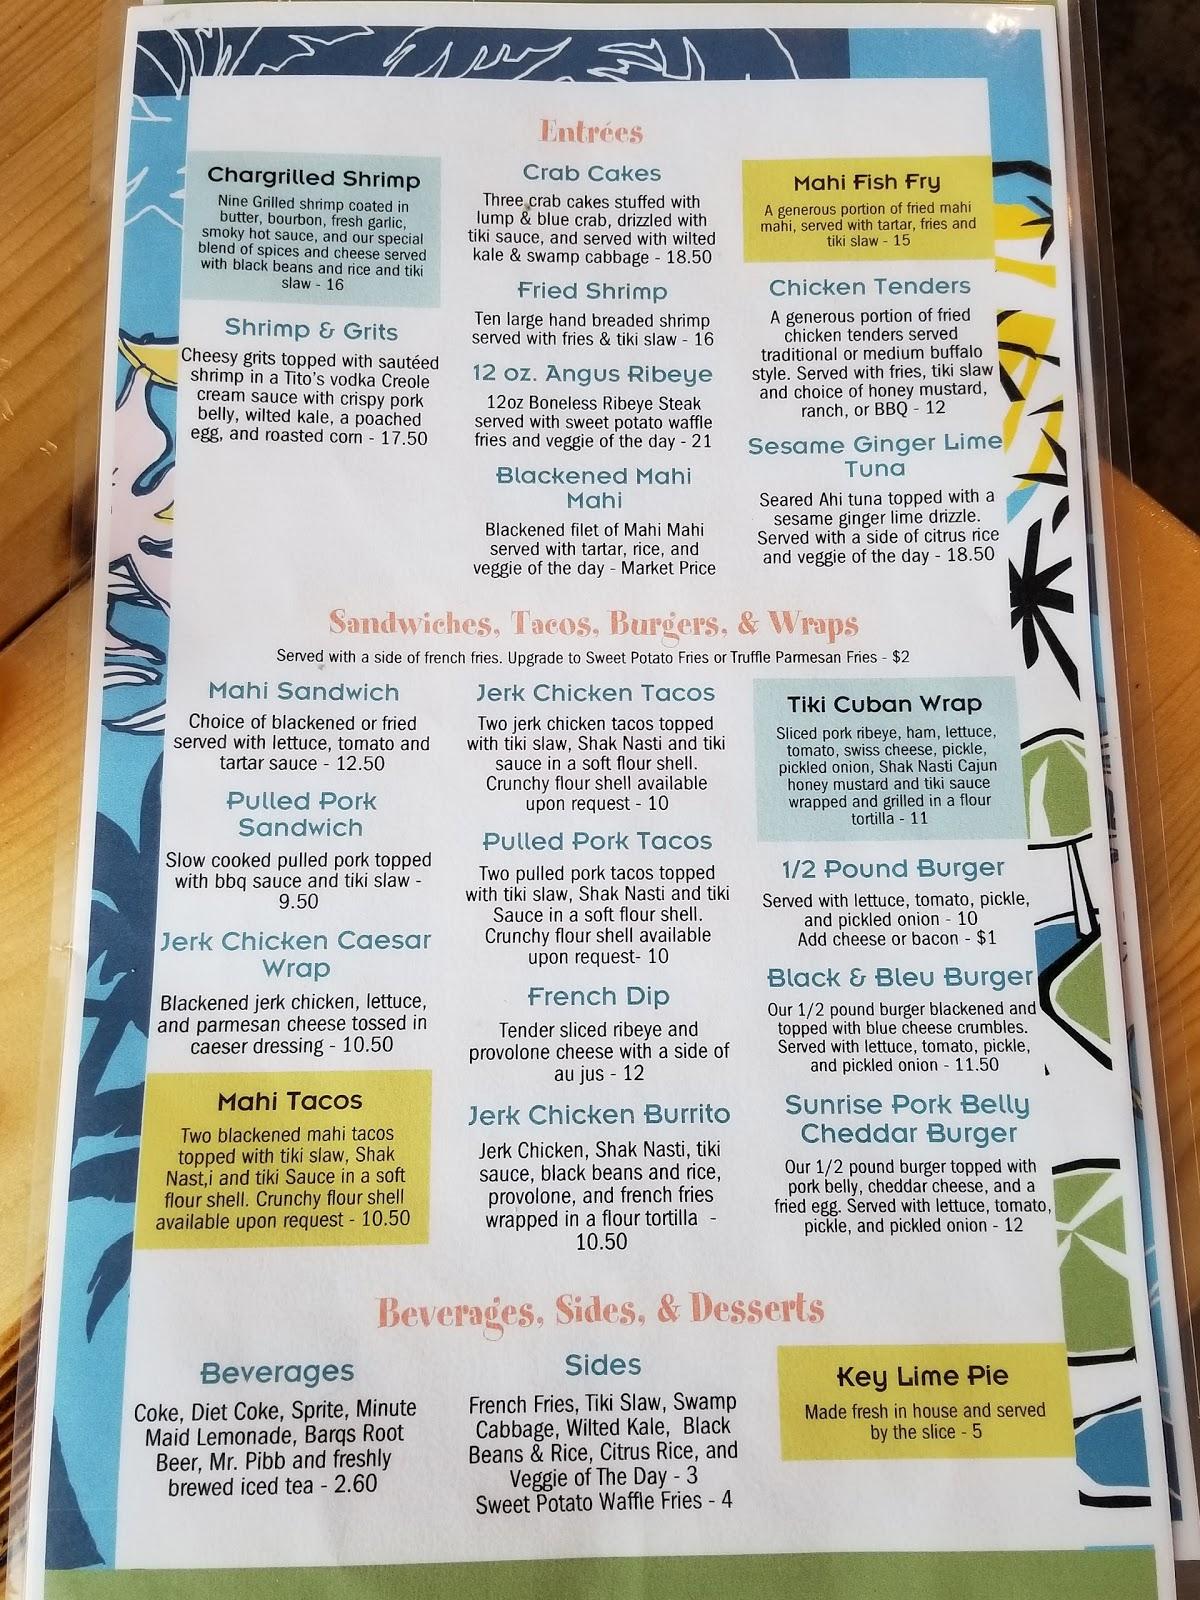 Entrées
Chargrilled Shrimp
Nine Grilled shrimp coated in
butter, bourbon, fresh garlic,
smoky hot sauce, and our special
blend of spices and cheese served
with black beans and rice and tiki
slaw - 16
Shrimp & Grits
Cheesy grits topped with sautéed
shrimp in a Tito's vodka Creole
cream sauce with crispy pork
belly, wilted kale, a poached
egg, and roasted corn - 17.50
Crab Cakes
Three crab cakes stuffed with
lump & blue crab, drizzled with
tiki sauce, and served with wilted
kale & swamp cabbage - 18.50
Fried Shrimp
Ten large hand breaded shrimp
served with fries & tiki slaw - 16
12 oz. Angus Ribeye
12oz Boneless Ribeye Steak
served with sweet potato waffle
fries and veggie of the day - 21
Blackened Mahi
Mahi
Blackened filet of Mahi Mahi
served with tartar, rice, and
veggie of the day - Market Price
Mahi Fish Fry
A generous portion of fried mahi
mahi, served with tartar, fries and
tiki slaw - 15
Chicken Tenders
A generous portion of fried
chicken tenders served
traditional or medium buffalo
style. Served with fries, tiki slaw
and choice of honey mustard,
ranch, or BBQ - 12
Sesame Ginger Lime
Tuna
Seared Ahi tuna topped with a
sesame ginger lime drizzle.
Served with a side of citrus rice
and veggie of the day - 18.50
Sandwiches, Tacos, Burgers, & Wraps
Served with a side of french fries. Upgrade to Sweet Potato Fries or Truffle Parmesan Fries - $2
Mahi Sandwich
Choice of blackened or fried
served with lettuce, tomato and
tartar sauce - 12.50
Pulled Pork
Sandwich
Slow cooked pulled pork topped
with bbq sauce and tiki slaw -
9.50
Jerk Chicken Caesar
Wrap
Blackened jerk chicken, lettuce,
and parmesan cheese tossed in
caeser dressing - 10.50
Mahi Tacos
Two blackened mahi tacos
topped with tiki slaw, Shak
Nast,i and tiki Sauce in a soft
flour shell. Crunchy flour shell
available upon request - 10.50
Jerk Chicken Tacos
Two jerk chicken tacos topped
with tiki slaw, Shak Nasti and tiki
sauce in a soft flour shell.
Crunchy flour shell available
upon request - 10
Pulled Pork Tacos
Two pulled pork tacos topped
with tiki slaw, Shak Nasti and tiki
Sauce in a soft flour shell.
Crunchy flour shell available
upon request- 10
French Dip
Tender sliced ribeye and
provolone cheese with a side of
au jus - 12
Jerk Chicken Burrito
Jerk Chicken, Shak Nasti, tiki
sauce, black beans and rice,
provolone, and french fries
wrapped in a flour tortilla -
10.50
Tiki Cuban Wrap
Sliced pork ribeye, ham, lettuce,
tomato, swiss cheese, pickle,
pickled onion, Shak Nasti Cajun
honey mustard and tiki sauce
wrapped and grilled in a flour
tortilla - 11
1/2 Pound Burger
Served with lettuce, tomato, pickle,
and pickled onion - 10
Add cheese or bacon - $1
Black & Bleu Burger
Our 1/2 pound burger blackened and
topped with blue cheese crumbles.
Served with lettuce, tomato, pickle,
and pickled onion - 11.50
Sunrise Pork Belly
Cheddar Burger
Our 1/2 pound burger topped with
pork belly, cheddar cheese, and a
fried egg. Served with lettuce, tomato,
pickle, and pickled onion - 12
Beverages, Sides, & Desserts
Beverages
Coke, Diet Coke, Sprite, Minute
Maid Lemonade, Barqs Root
Beer, Mr. Pibb and freshly
brewed iced tea - 2.60
Sides
French Fries, Tiki Slaw, Swamp
Cabbage, Wilted Kale, Black
Beans & Rice, Citrus Rice, and
Veggie of The Day - 3
Sweet Potato Waffle Fries - 4
Key Lime Pie
Made fresh in house and served
by the slice - 5